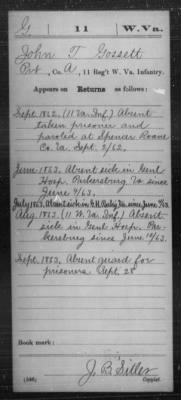 G 11 W.Va.
John T Gossett
Pvt, Co. A, 11 Reg't W. Va. Infantry.
Appears on Returns as follows:
Sept. 1862, (11 Va. Inf.) Absent
taken prisoner and
paroled at Spencer Roane
Co. Va Sept. 2/62,
June 1863, Absent sick in Genl
Hosp. Parkersburg Va since
June 9/63.
July 1863, Absent sick in G.H. Va. since June
Aug. 1863. (11 W. Va Inf.) Absent
sick in Genl Hosp. Par-
kersburg since June 10/63.
Sept. 1863, Absent guard for
prisoners. Sept. 28
Book mark:
J. B. Siller
(546) Copyist.